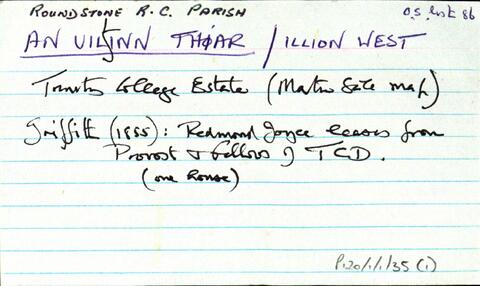 ROUNDSTONE R.C. PARISH
O.S. 86
AN UILLINN THIAR / ILLION WEST
Trinity College Estate (Martin Sale map)
Griffith (1855): Redmond Joyce leases from
Provost & Fellows of TCD.
(one house)
P120/1/1/35 (1)